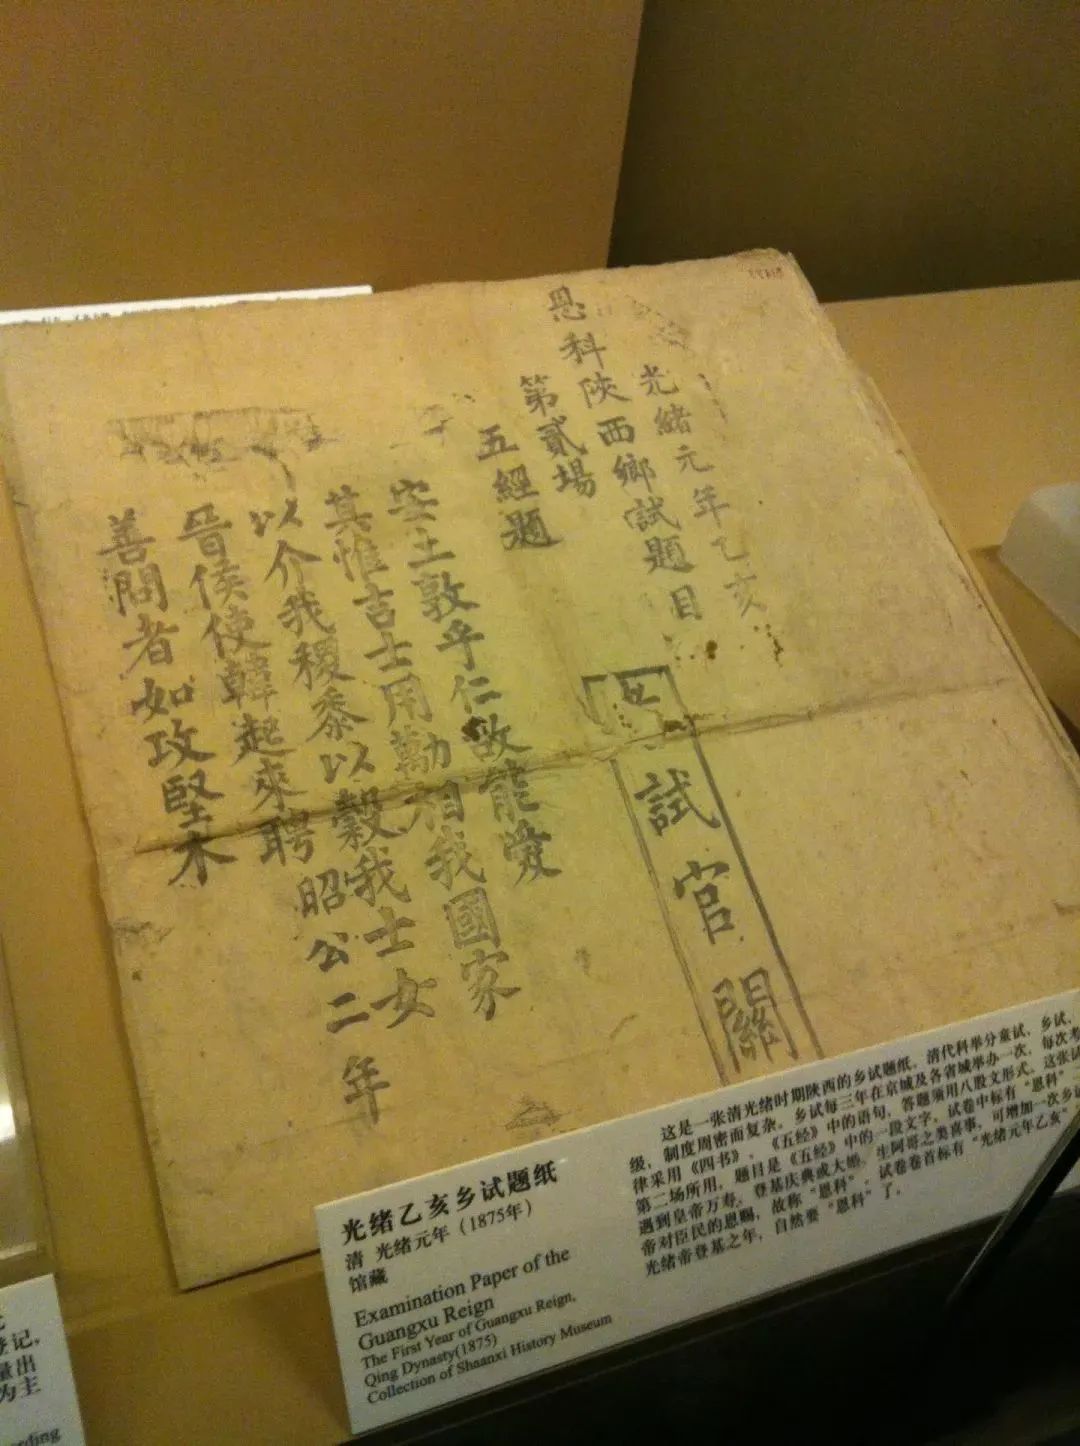 光緒元年乙亥
恩科陝西鄉試題目
第貳場
五經題
安土敦乎仁故能愛
其惟吉士用勱相我國家
以介我稷黍以穀我士女
晉侯使韓起來聘 昭公二年
善問者如攻堅木
試官關
光绪乙亥乡试题纸
清 光绪元年（1875年）
馆藏
Examination Paper of the
Guangxu Reign
The First Year of Guangxu Reign,
Qing Dynasty(1875)
Collection of Shaanxi History Museum
这是一张清光绪时期陕西的乡试题纸。清代科举分童试、乡试、
级，制度周密而复杂。乡试每三年在京城及各省城举办一次，每次考
律采用《四书》、《五经》中的语句，答题须用八股文形式。这张试
第二场所用，题目是《五经》中的一段文字。试卷中标有“恩科”二
遇到皇帝万寿、登基庆典或大婚、生阿哥之类喜事，可增加一次乡试
帝对臣民的恩赐，故称“恩科”。试卷卷首标有“光绪元年乙亥”
光绪帝登基之年，自然要“恩科”了。
登记，
量出
为主